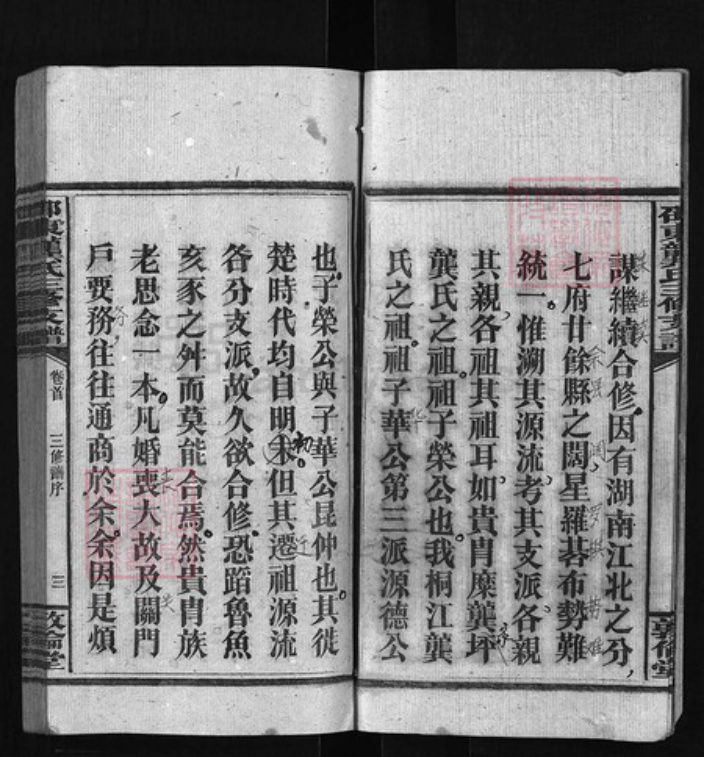 謀繼續合修因有湖南江北之分
七府廿餘縣之闊星羅碁布勢難
統一惟溯其源流考其支派各親
其親各祖其祖耳如貴冑糜龔坪
龔氏之祖祖子榮公也我桐江龔
氏之祖祖子華公第三派源德公
也子榮公與子華公昆仲也其徙
楚時代均自明末但其遷祖源流
各分支派故久欲合修恐蹈魯魚
亥豕之舛而莫能合焉然貴冑族
老思念一本凡婚喪大故及關門
戶要務往往通商於余余因是煩
邵東龔氏三修支譜
卷首
三修譜序
三
敦倫堂